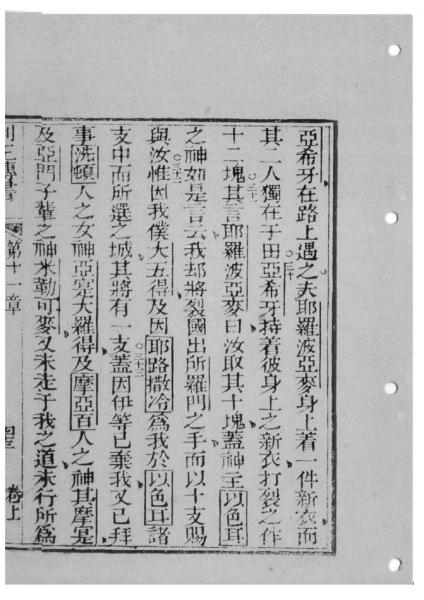 亞希牙在路上遇之夫耶羅波亞麥身上着一件新衣而
其二人獨在于田亞希牙持着彼身上之新衣打裂之作
三十
十二塊其言耶羅波亞麥曰汝取其十塊蓋神主以色耳
三十一
之神如是言云我却將裂國出所羅門之手而以十支賜
與汝惟因我僕大五得及因耶路撒冷為我於以色耳諸
三十二
支中而所選之城其將有一支蓋因伊等已棄我又已拜
三十三
事洗頓人之女神亞寔大羅得及摩亞百人之神其摩寔
及亞門子輩之神米勒可麥又未走于我之道未行所為
列王傳書
第十一章
卷上